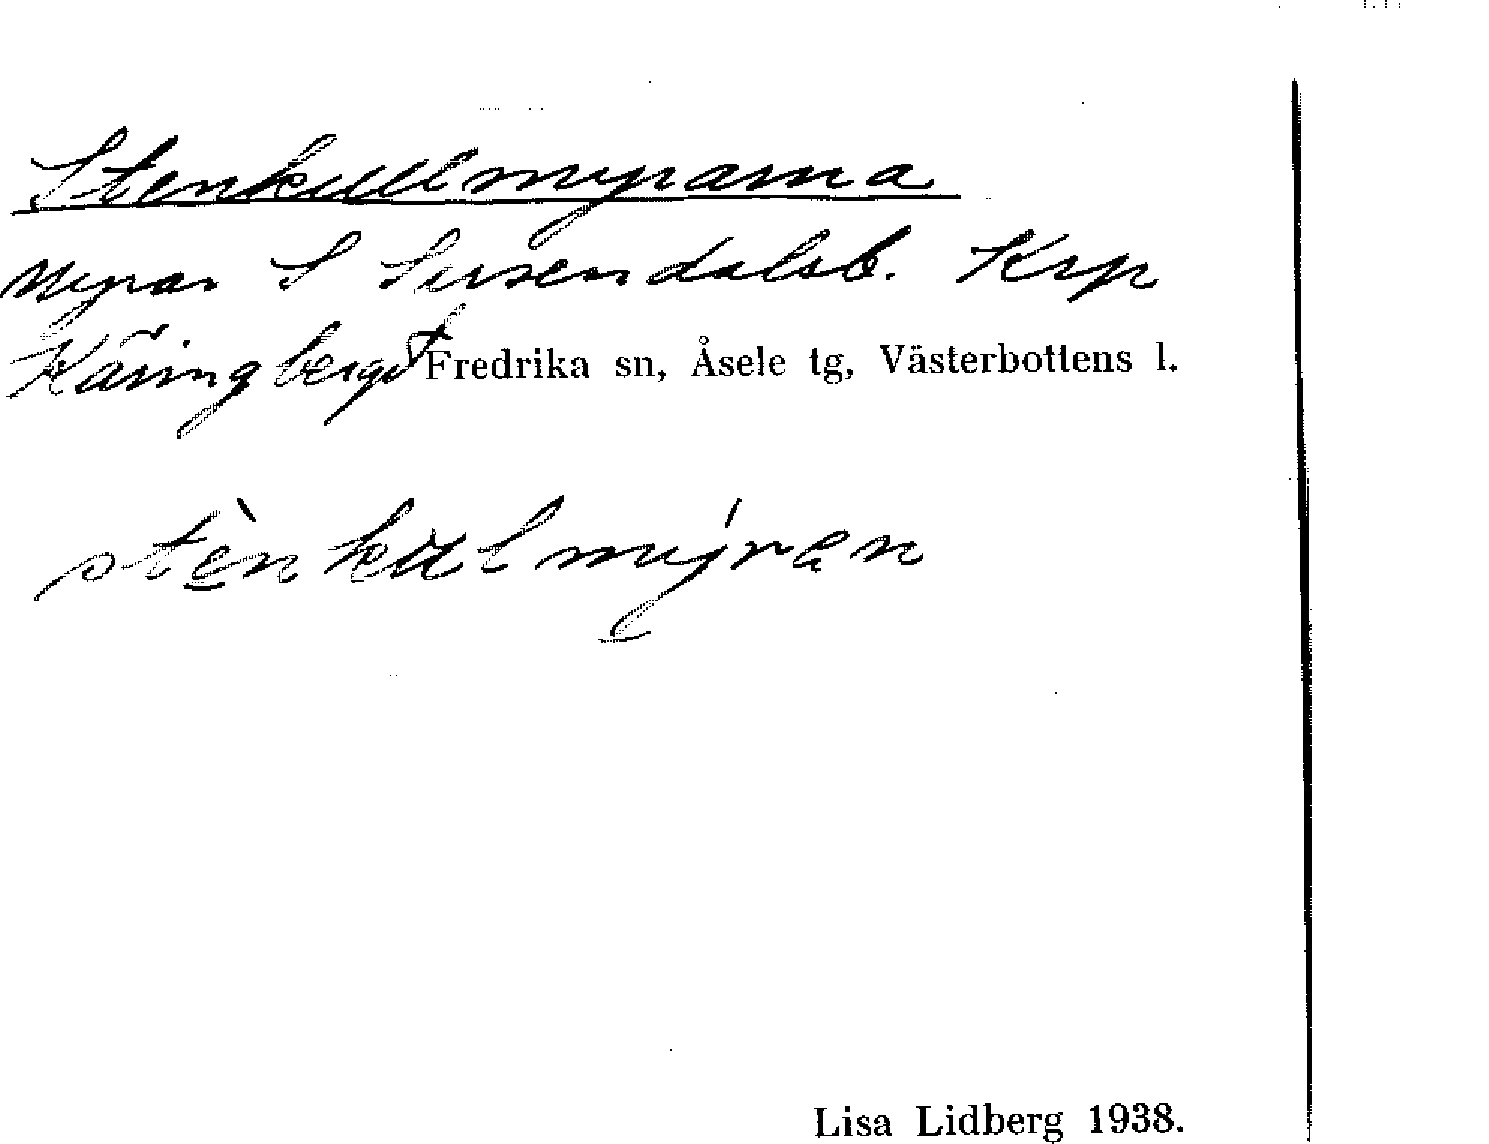 Stenkullmyrarna
Myrar S Sirsendalsb. Krp
Käringberget Fredrika sn, Åsele tg, Västerbottens l.
stènkulmýran
Lisa Lidberg 1938.